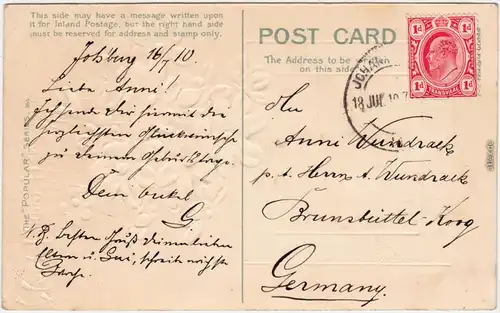 This side may have a message written upon
it for Inland Postage, but the right hand side
must be reserved for address and stamp only.
Johburg 16/7 10.
Liebe Anni!
Ich sende Dir hiermit die
herzlichsten Glückwünsche
zu Deinem Geburtstage.
Dein Onkel
G.
N.B. besten Gruß an die lieben
Eltern u. schreib nächste
Woche.
THE "POPULAR" SERIES
POST CARD
The Address to be written
on this side.
JOHA
18 JUL 10
1d 1d
TRANSVAAL
Hu
Anni Wundrack
p. t. Herrn A. Wundrack
Brunsbüttel-Koog
Germany.